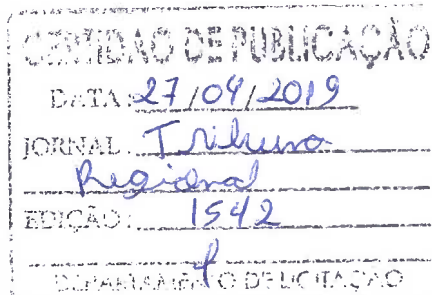 CERTIDÃO DE PUBLICAÇÃO
DATA: 27/04/2019
JORNAL: Tribuna
Regional
EDIÇÃO: 1542
DEPARTAMENTO DE LICITAÇÃO